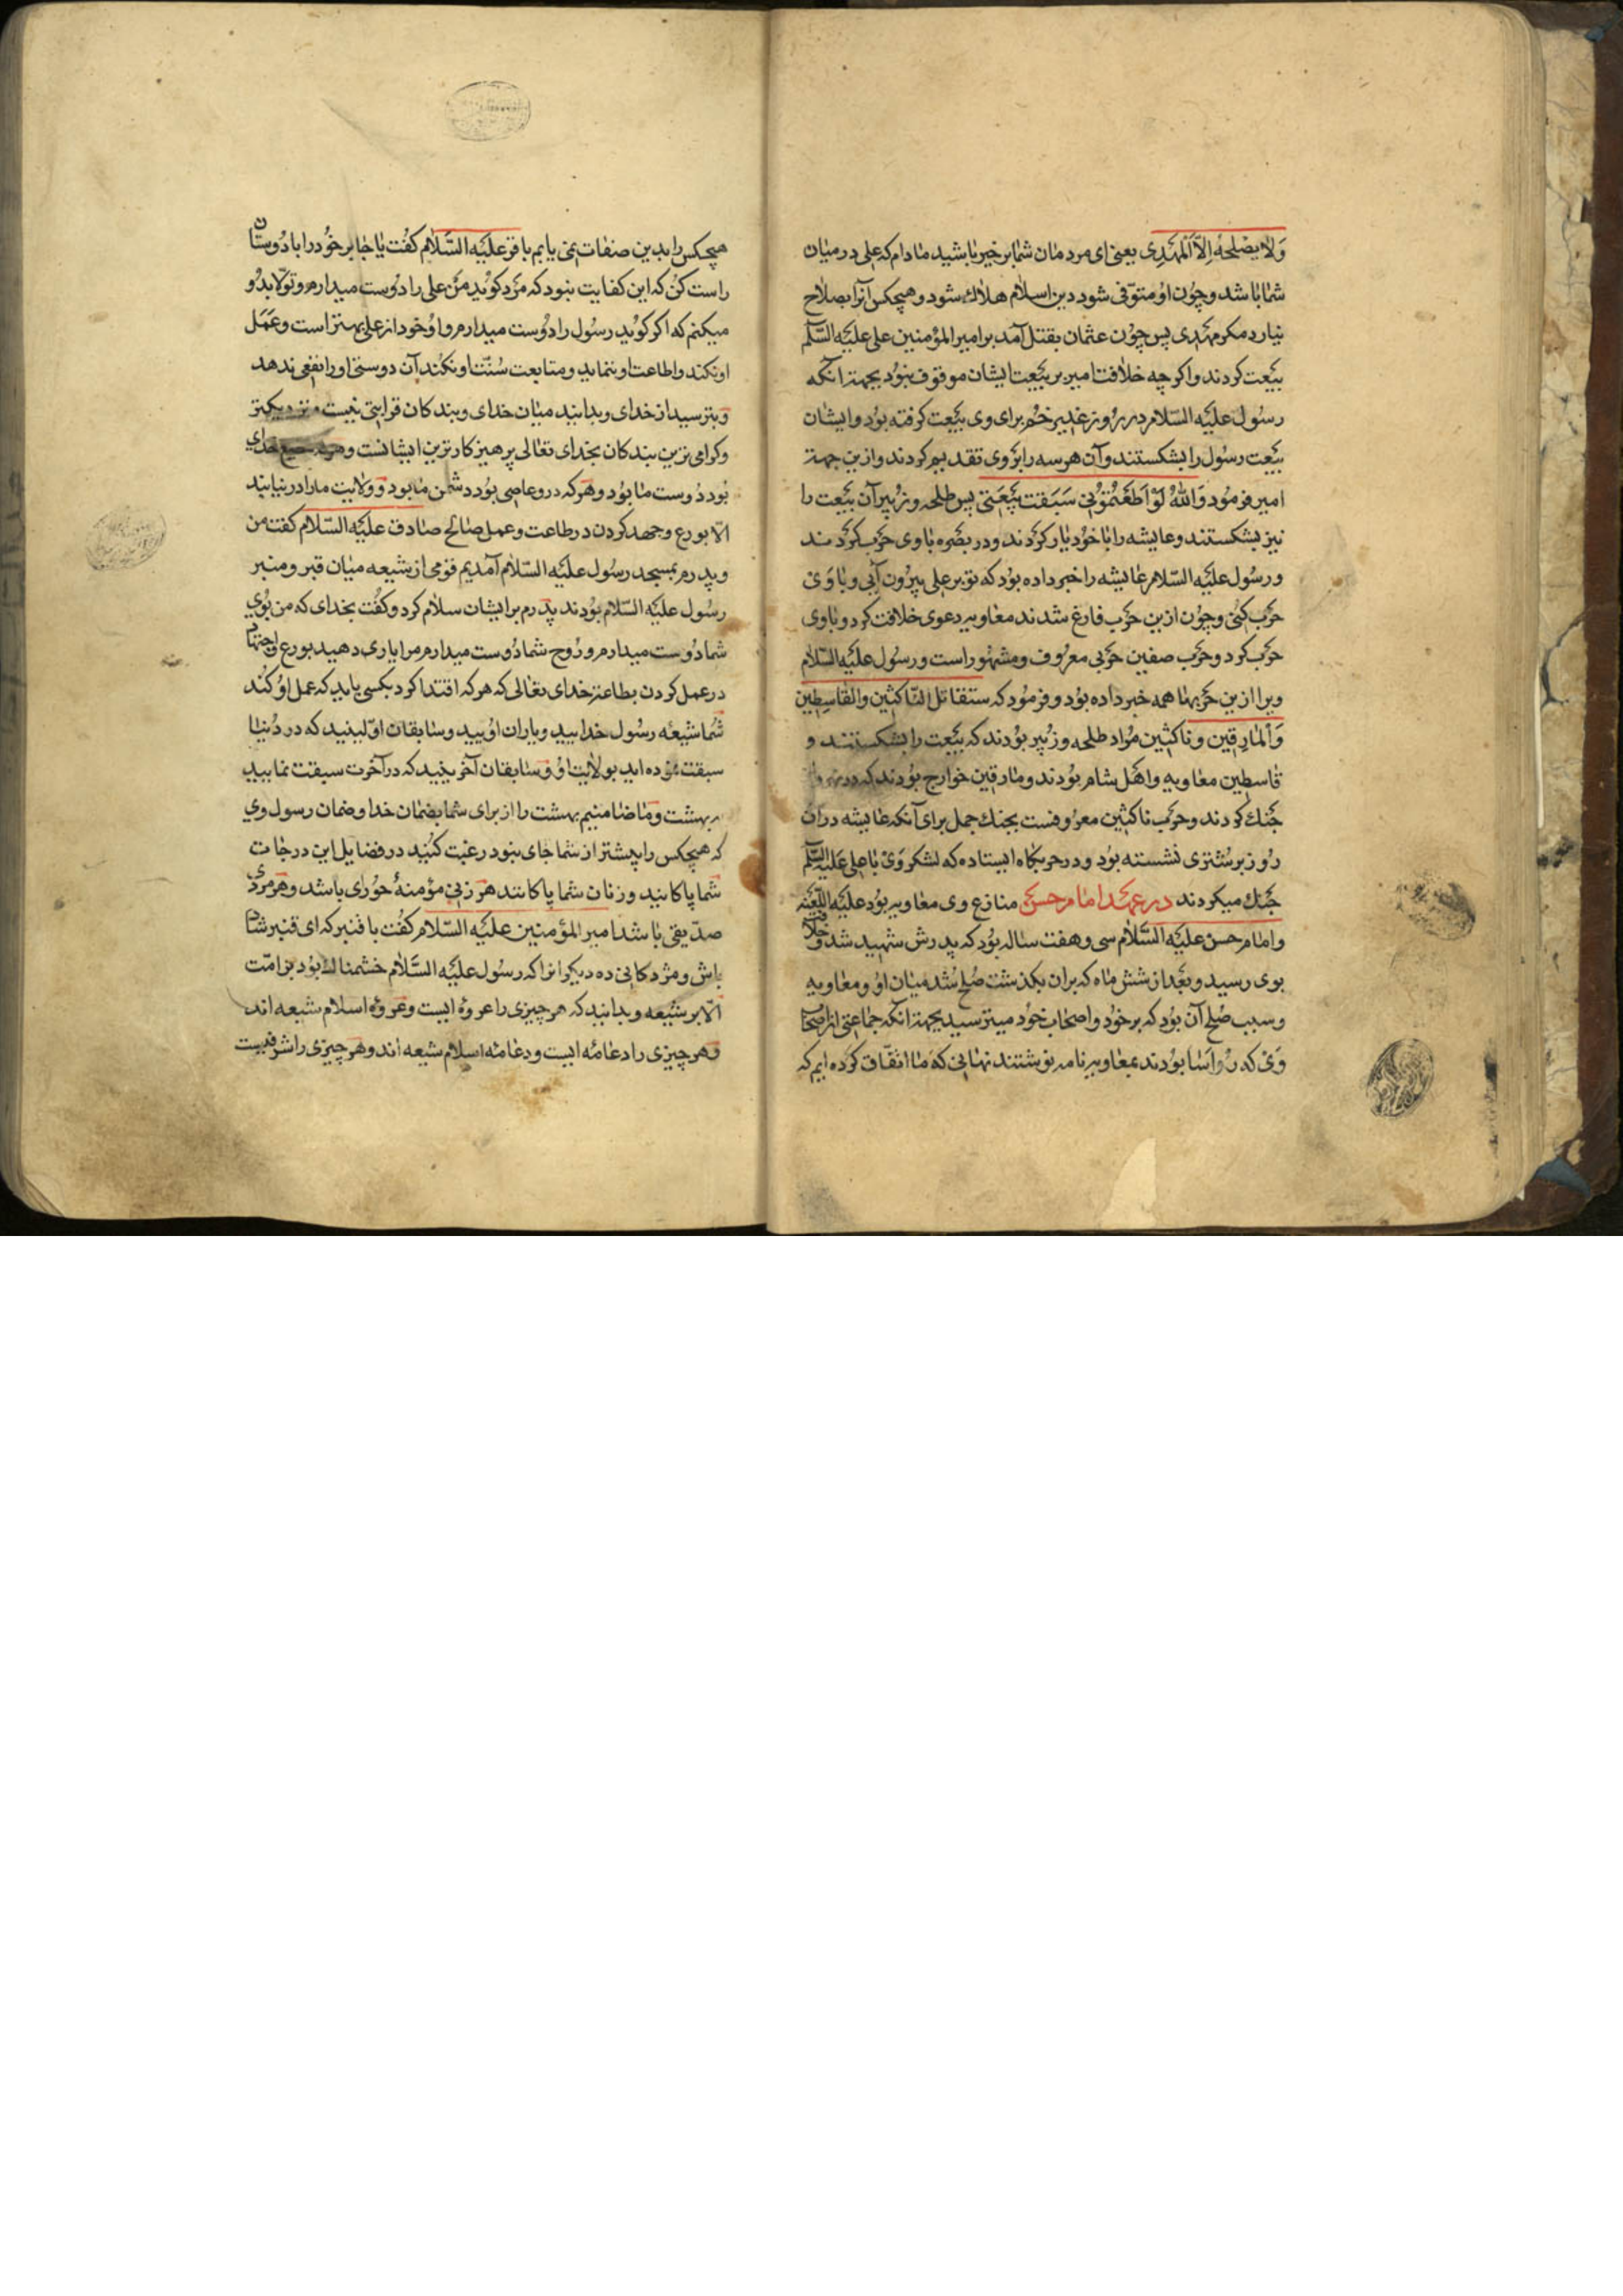 وَلٰا یصْلِحهُ اِلاّ اَلْمَهْدِی یعنی ای مردمان شما بر خیر باشید مادام که علی در میان
شما باشد و چون او متوّفی شود دین اسلام هلاك شود و هیچکس آنرا بصلاح
نیارد مکر مهدی پس چون عثمان بقتل آمد بر امیر المؤمنین علی علیَه السّلم
بیَعت کردند و اکر چه خلافت امیر بر بیَعت ایشان موقوف نبود بجهة آنکه
رسول علیَه السّلام در روز غدیر خم برای وی بیَعت کرفته بود و ایشان
بیَعت رسول را بشکستند و آن هر سه را بر وی تقدیم کردند و ازین جهة
امیر فرمود وَاللهُ لَوْ اَطَعْتمُوُنی سَبَقت بیَعَتی پس طلحه و زبیر آن بیَعت را
نیز بشکستند و عایشه را با خود یار کردند و در بصره با وی حرب کردند
و رسول علیَه السّلام عایشه را خبر داده بود که تو بر علی بیرون آیی و با وی
حرب کنی و چون ازین حرب فارغ شدند معاویه دعوی خلافت کرد و با وی
حرب کرد و حرب صفین حربی معروف و مشهور است و رسول علیَه السّلام
ویرا ازین حربها همه خبر داده بود و فرمود که ستقاتل النّاکثین والقاسطین
وَالمارقین و ناکثین مراد طلحه و زبیر بودند که بیَعت را بشکستند و
قاسطین معاویه و اهل شام بودند و مارقین خوارج بودند که در
جنك کردند و حرب ناکثین معروفست بجنك جمل برای آنکه عایشه در آن
روز بر شتری نشسته بود و در حربکاه ایستاده که لشکر وی با علی علیَه السّلم
جنك میکردند در عهد امام حسن منازع وی معاویه بود علیَه اللّعنه
و امام حسن علیَه السّلام سی و هفت ساله بود که پدرش شهید شد و خلافت
بوی رسید و بعد از شش ماه که بران بکذشت صُلح شد میان او و معاویه
و سبب صُلح آن بود که بر خود و اصحاب خود میترسید بجهة آنکه جماعتی از اصحاب
وی که رُواَسا بودند بمعاویه نامه نوشتند نهانی که ما اتفّاق کرده ایم که
هیچکس را بدین صفات نمی یابم باقر علیَه السّلام کفت یا جابر خود را با دوستان
راست کن که این کفایت نبود که مرد کوید من علی را دوست میدارم و تولّا بدو
میکنم که اکر کوید رسول را دوست میدارم و او خود از علی بهتر است و عَمَل
او نکند و اطاعت او ننماید و متابعت سُنّت او نکند آن دوستی او را نفعی ندهد
و بترسید از خدای و بدانید میان خدای و بندکان قرابتی نیست و نزدیکتر
و کرامی ترین بندکان بخدای تعالی پرهیزکارترین ایشانست و هرکه مطیع خدای
بود دوست ما بود و هرکه درو عاصی بود دشمن ما بود و ولایت ما را در نیابند
الاّ بورع و جهد کردن در طاعت و عمل صالح صادق علیَه السّلام کفت من
و پدرم بمسجد رسول علیَه السّلام آمدیم قومی از شیعه میان قبر و منبر
رسول علیَه السّلام بودند پدرم بر ایشان سلام کرد و کفت بخدای که من بوی
شما دوست میدارم و روح شما دوست میدارم مرا یاری دهید بورع و اجتهاد
در عمل کردن بطاعة خدای تعالی که هرکه اقتدا کرد بکسی باید که عمل او کند
شما شیعه رسول خدایید و یاران اویید و سابقان اوّلیند که در دنیا
سبقت نموده اید بولایت او و سابقان آخریند که در آخرت سبقت نمایید
ببهشت و ما ضامنیم بهشت را از برای شما بضمان خدا و ضمان رسول وی
که هیچکس را پیشتر از شما جای نبود رغبت کنید در فضایل این درجات
شما پاکانید و زنان شما پاکانند هر زنی مؤمنهٔ حوُرای باشد و هر مردی
صدّیقی باشد امیر المؤمنین علیَه السّلام کفت با قنبر که ای قنبر شاد
باش و مژدکانی ده دیکرانرا که رسول علیَه السّلام خشمناك بود بر امّت
الاّ بر شیعه و بدانید که هر چیزی را عروه ایست و عروه اسلام شیعه اند
و هر چیزی را دعامه ایست و دعامه اسلام شیعه اند و هر چیزی را شرفیست